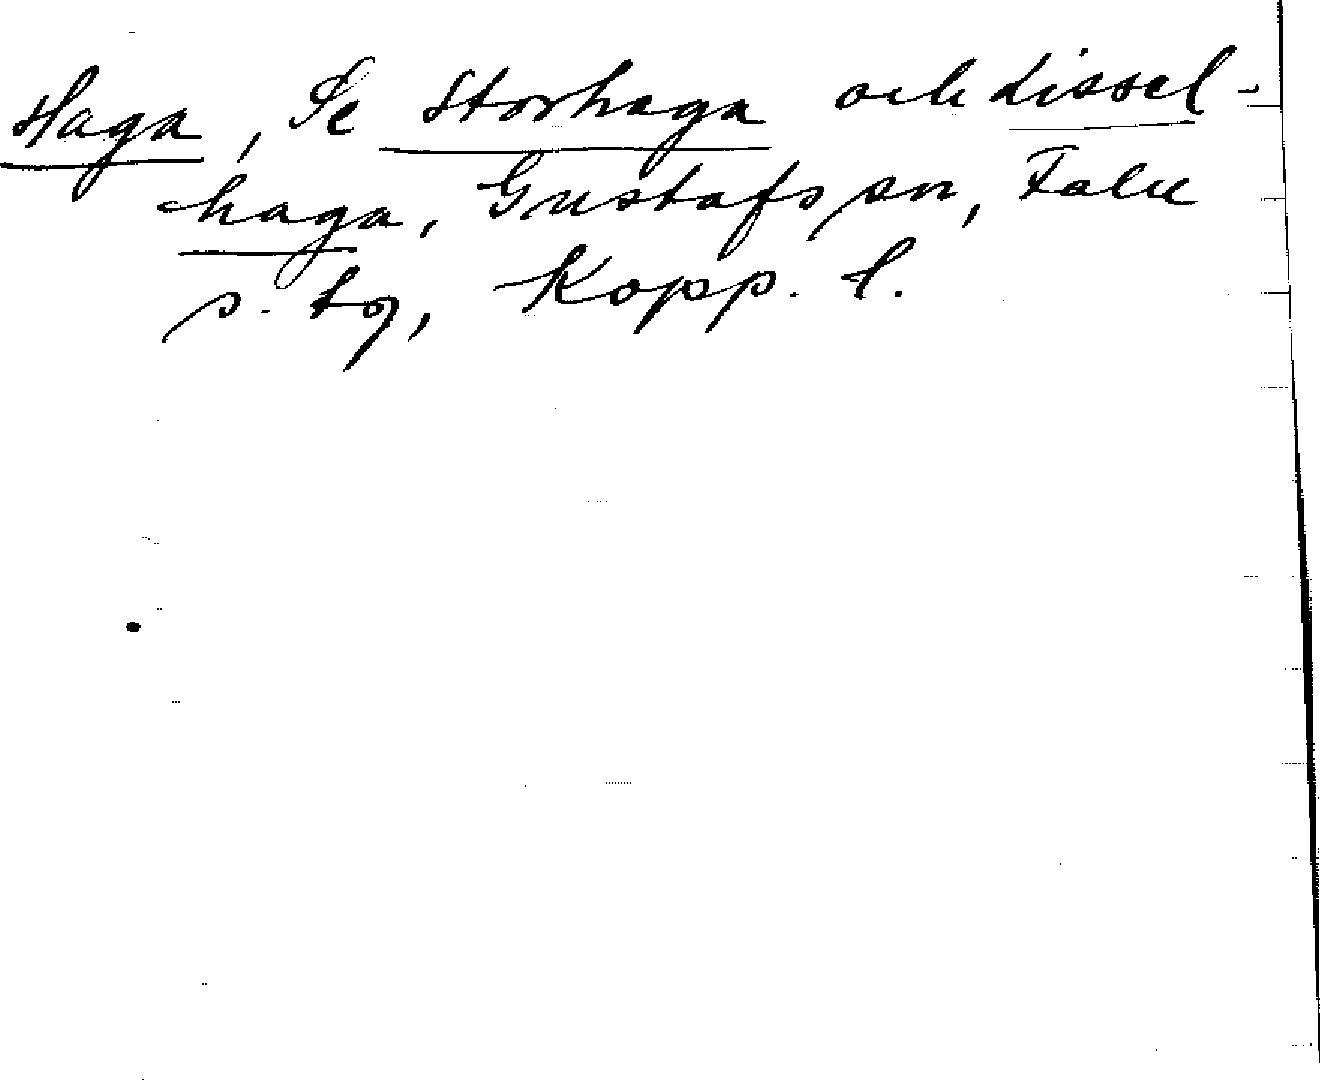 Haga, Se Storhaga och Lissel-
haga, Gustafsson, Falu
s. tg, Kopp. l.